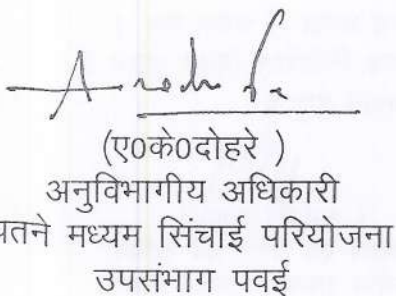 (ए0के0दोहरे )
अनुविभागीय अधिकारी
मध्यम सिंचाई परियोजना
उपसंभाग पवई